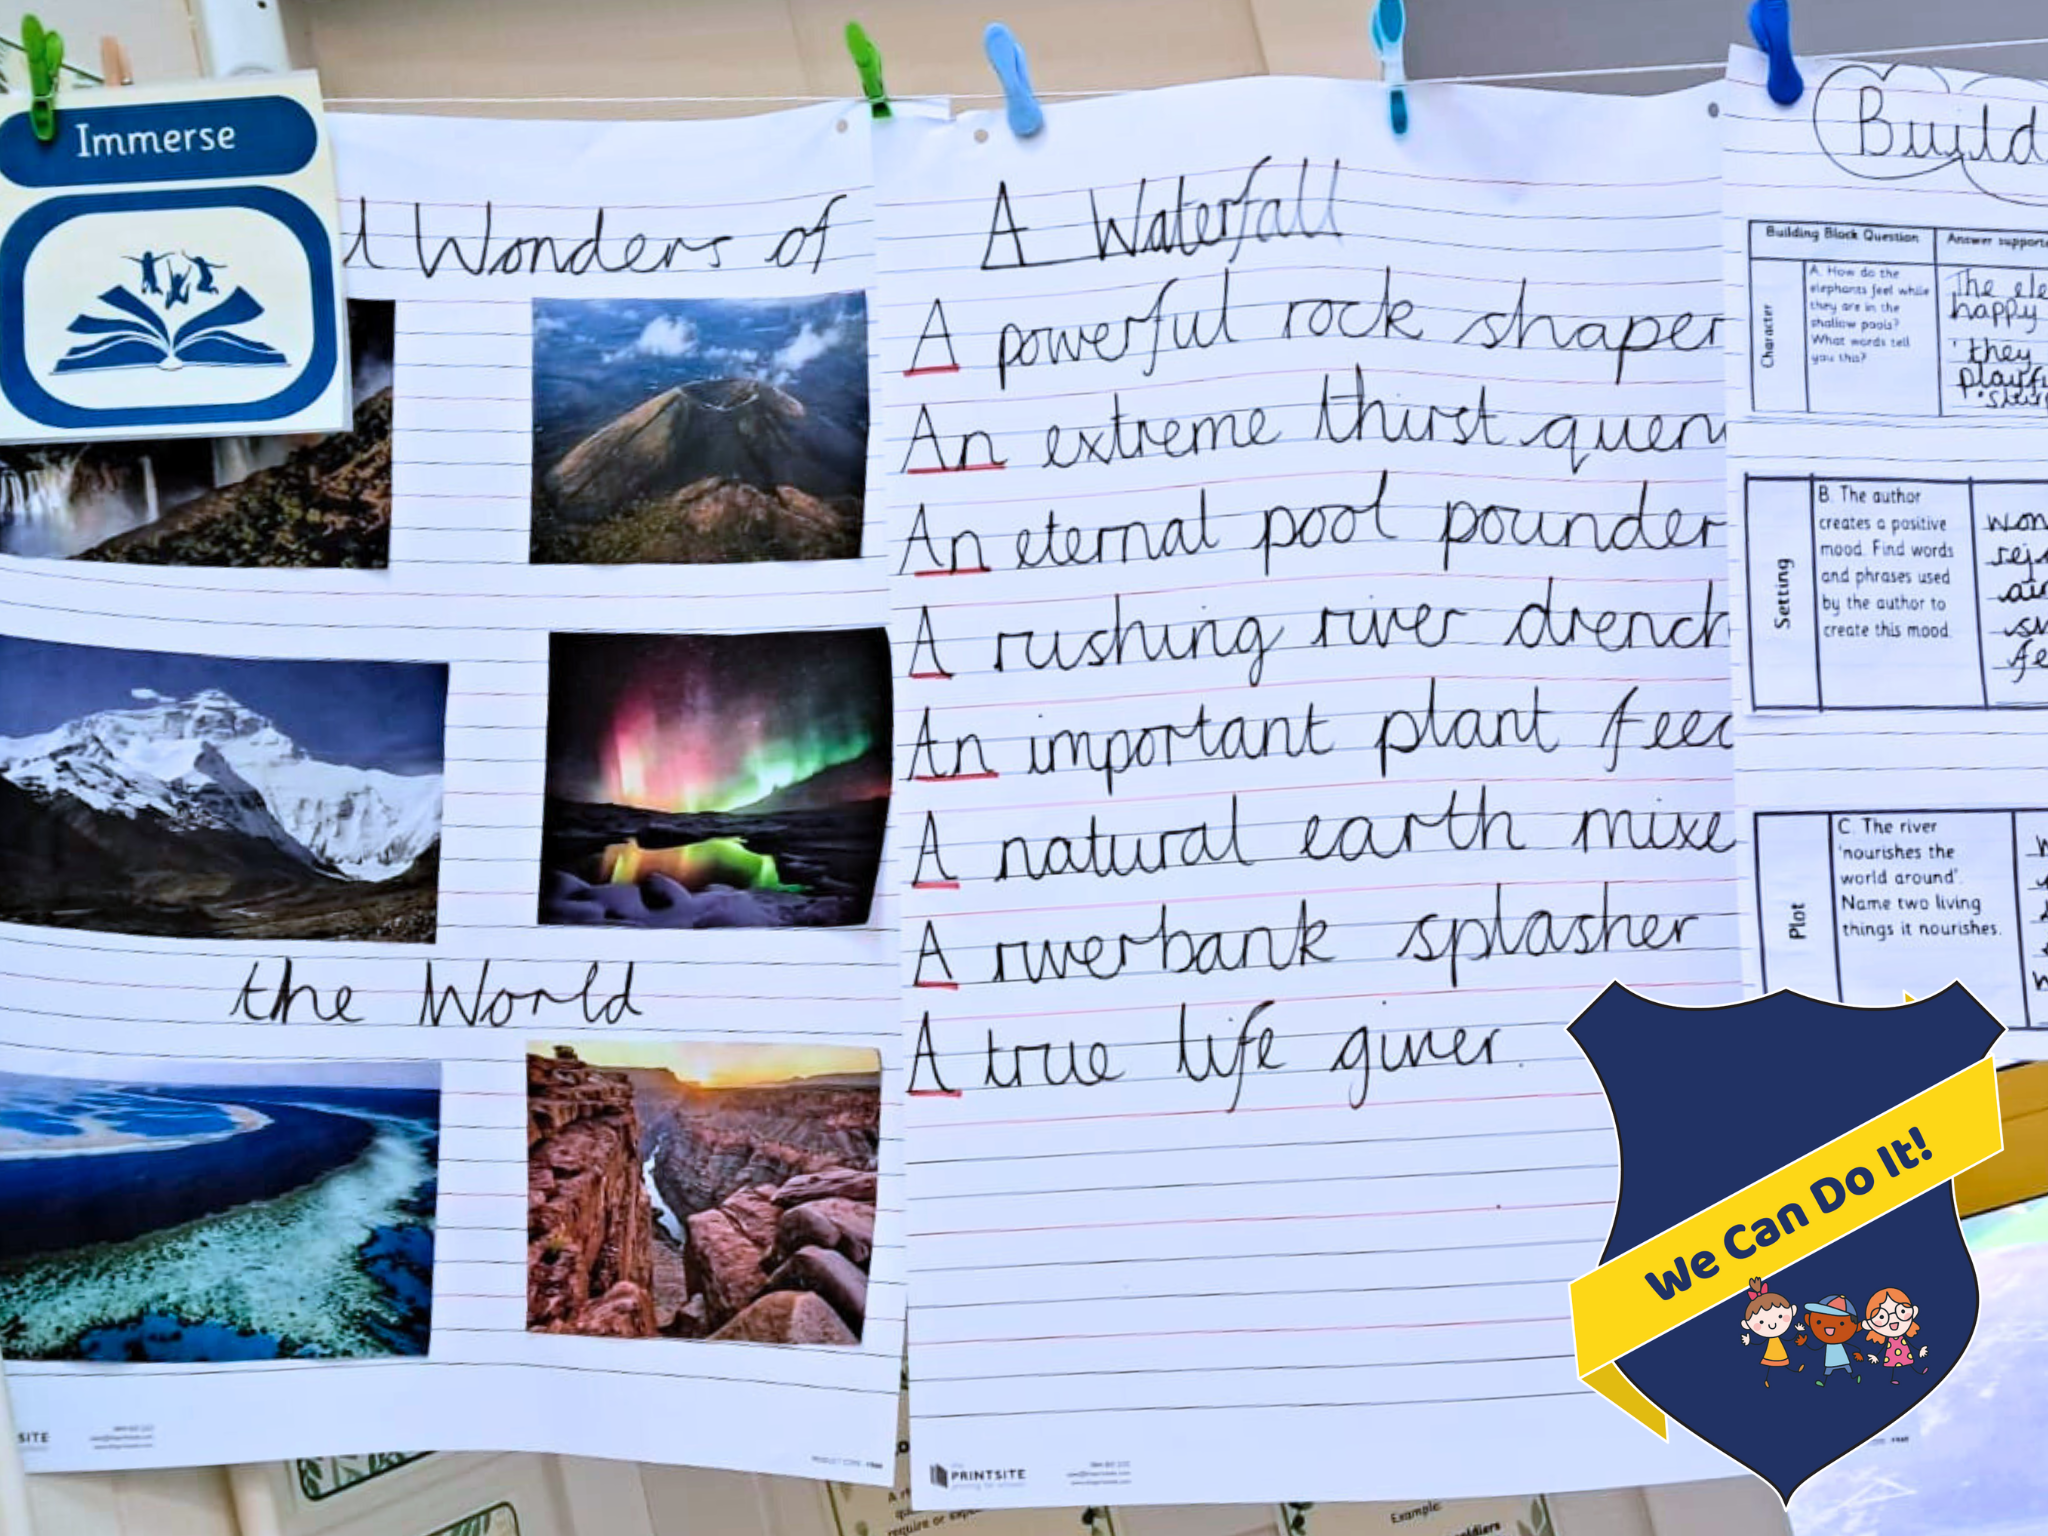 Immerse
Wonders of
the World
SITE
A Waterfall
A powerful rock shaper
An extreme thirst quen
An eternal pool pounder
A rushing river drench
An important plant feed
A natural earth mixe
A riverbank splasher
A true life giver.
PRINTSITE
Build
Building Block Question
Answer supporte
Character
A. How do the
elephants feel while
they are in the
shallow pools?
What words tell
you this?
The ele
happy
'they
playfu
Setting
B. The author
creates a positive
mood. Find words
and phrases used
by the author to
create this mood.
won
rej
air
fe
Plot
C. The river
'nourishes the
world around'.
Name two living
things it nourishes.
We Can Do It!
require or
Example:
oldiers